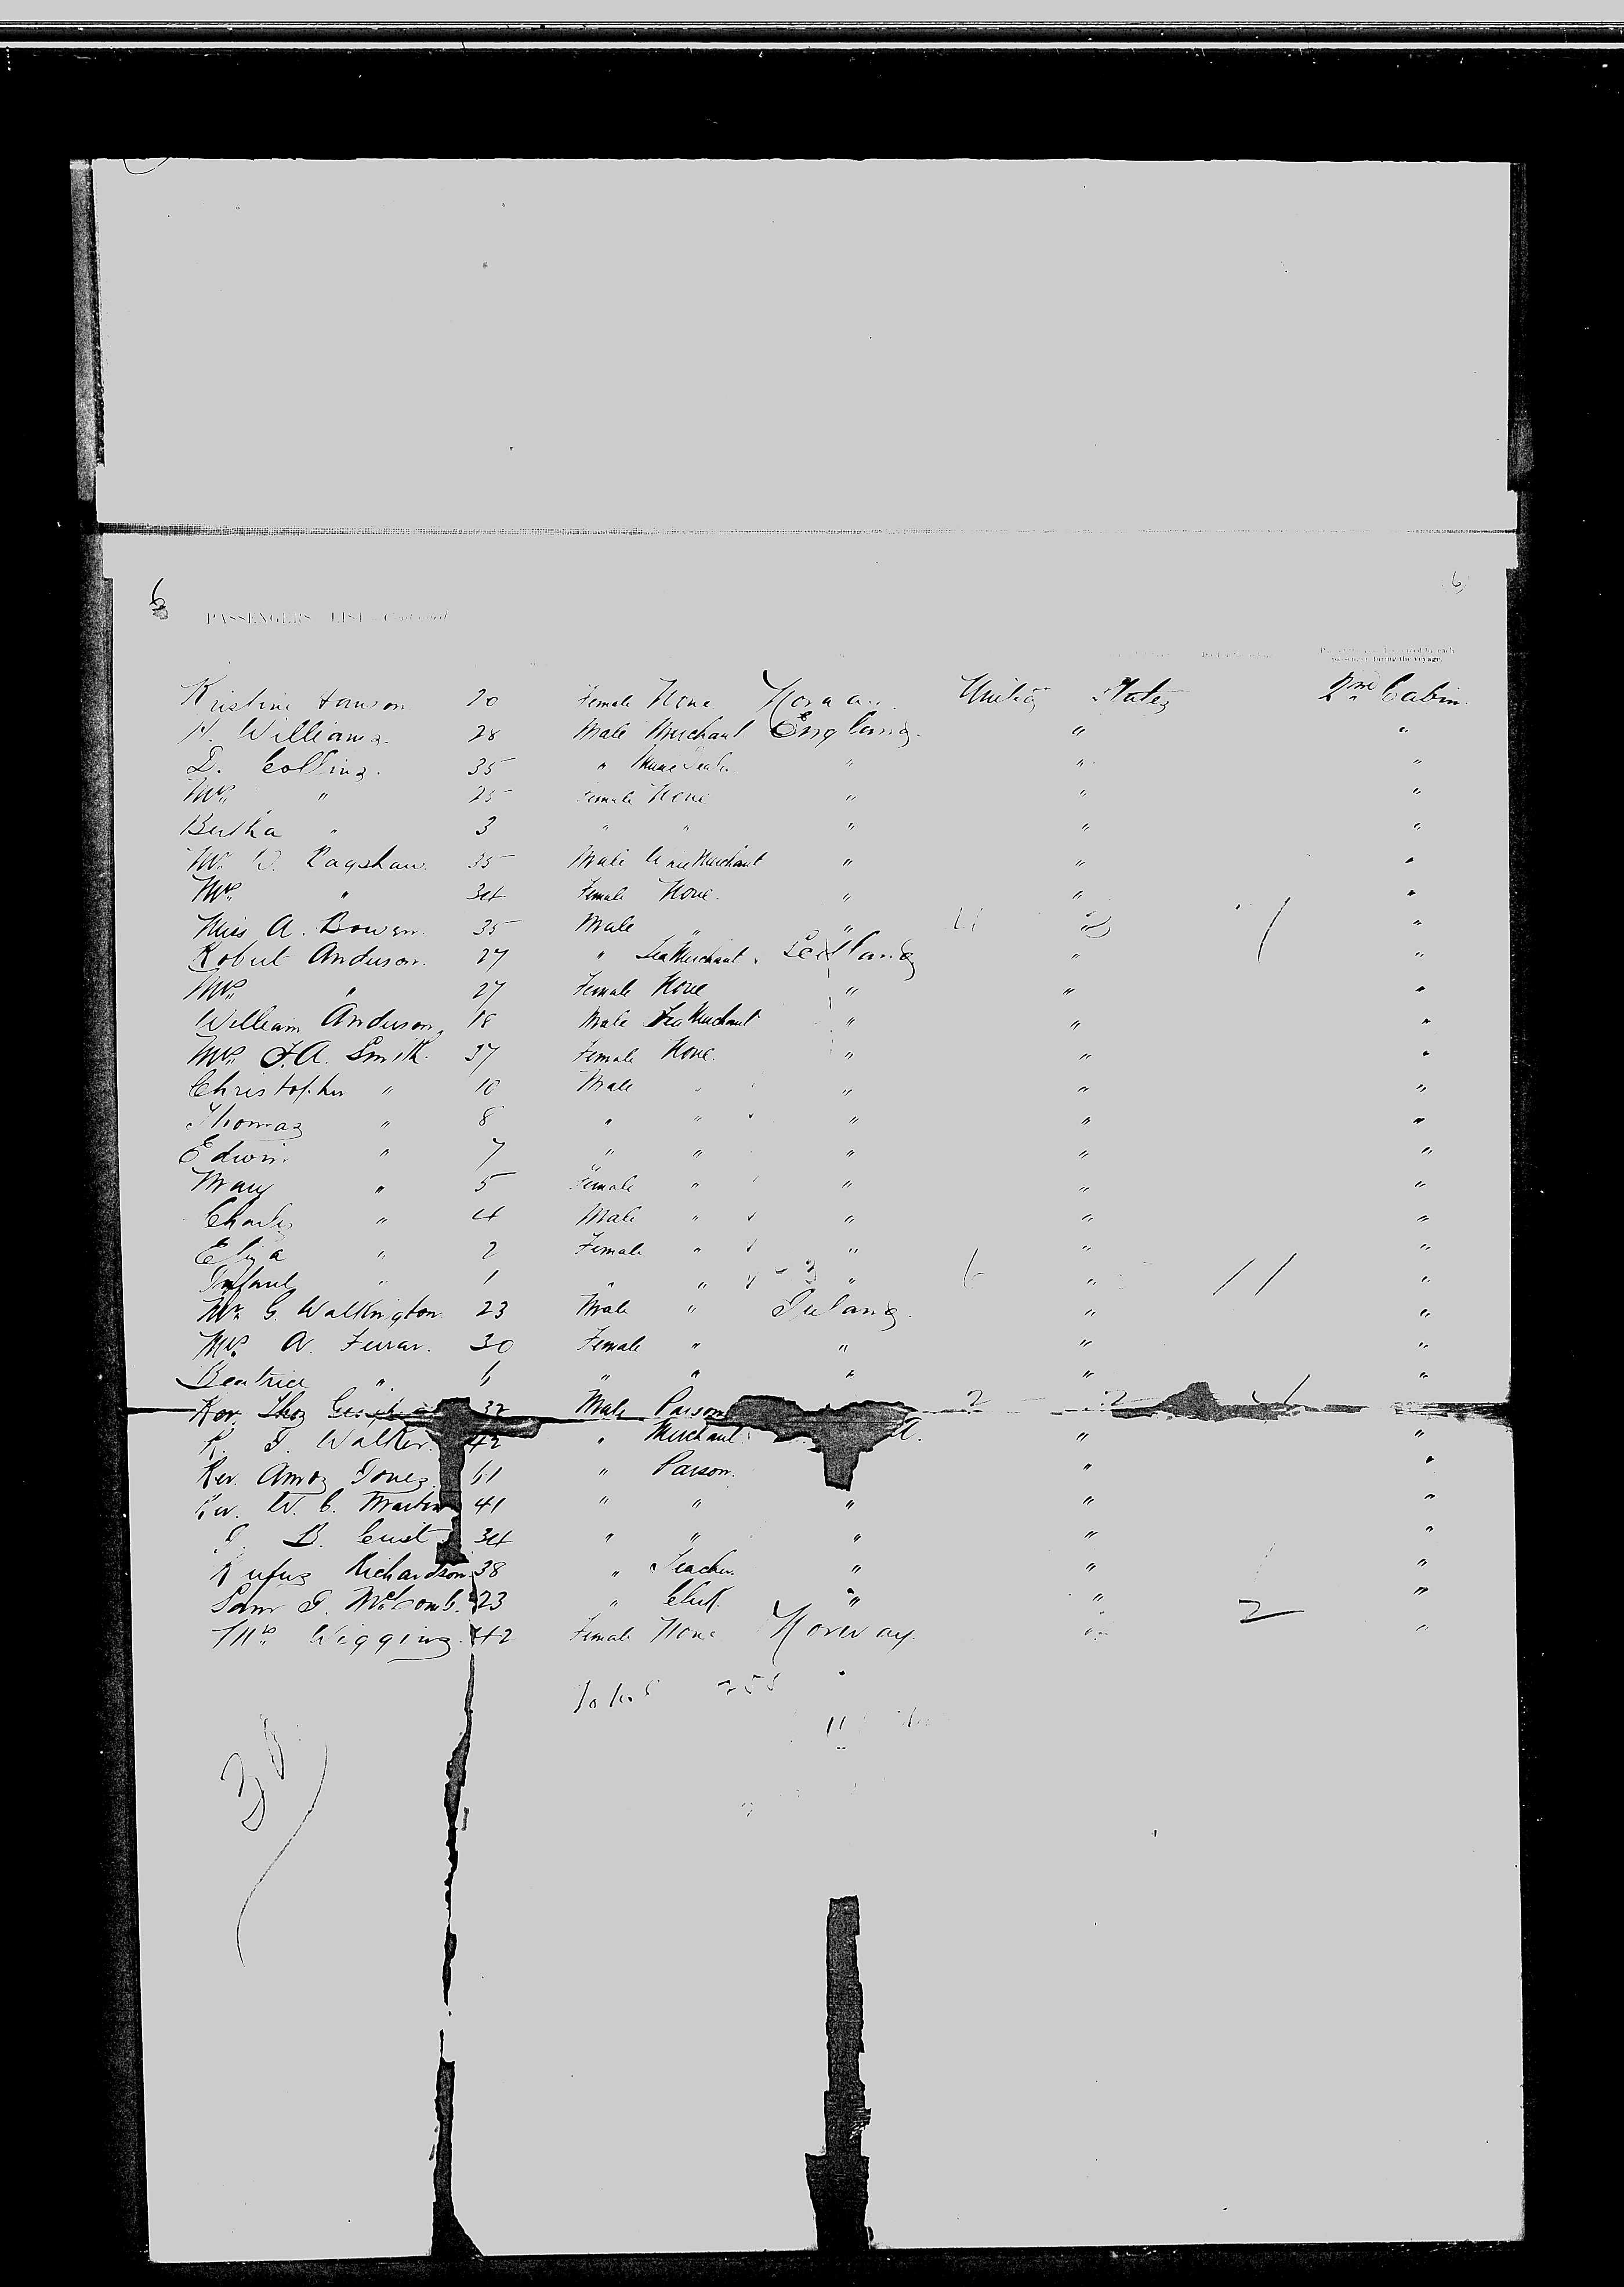 6
6
PASSENGERS LIST Continued
passenger during the voyage
Kristine 20 Female None United States 2nd Cabin
H. Williams 28 Male Merchant England " "
D. Collins 35 " " " "
Mrs " 25 Female None " " "
Bertha " 3 " " " " "
Mr W. Bagshaw 35 Male Merchant " " "
Mrs " 34 Female None " " "
Miss A. Bowen 35 Male " " " "
Robert Anderson 27 " Tea Merchant Scotland " "
Mrs " 27 Female None " " "
William Anderson 18 Male Tea Merchant " " "
Mrs J.A. Smith 37 Female None " " "
Christopher " 10 Male " " " "
Thomas " 8 " " " " "
Edwin " 7 " " " " "
Mary " 5 Female " " " "
Charles " 4 Male " " " "
Eliza " 2 Female " " " "
Infant " 1 " " " " "
Mr G. Walkington 23 Male " Ireland " "
Mrs A. Ferrar 30 Female " " " "
Beatrice " 6 " " " " "
Rev. Thos 32 Male Parson
R. J. Walker 42 " Merchant " "
Rev. Amos Jones 61 " Parson " "
Rev. W. C. Martin 41 " " " " "
B. 34 " " " " "
Rufus Richardson 38 " Teacher " " "
Sam J. McComb 23 " Clerk " " " 2
Mrs Wiggins 42 Female None Norway " "
Total
30